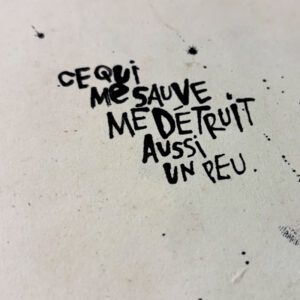 CE QUI
ME SAUVE
ME DÉTRUIT
AUSSI
UN PEU.